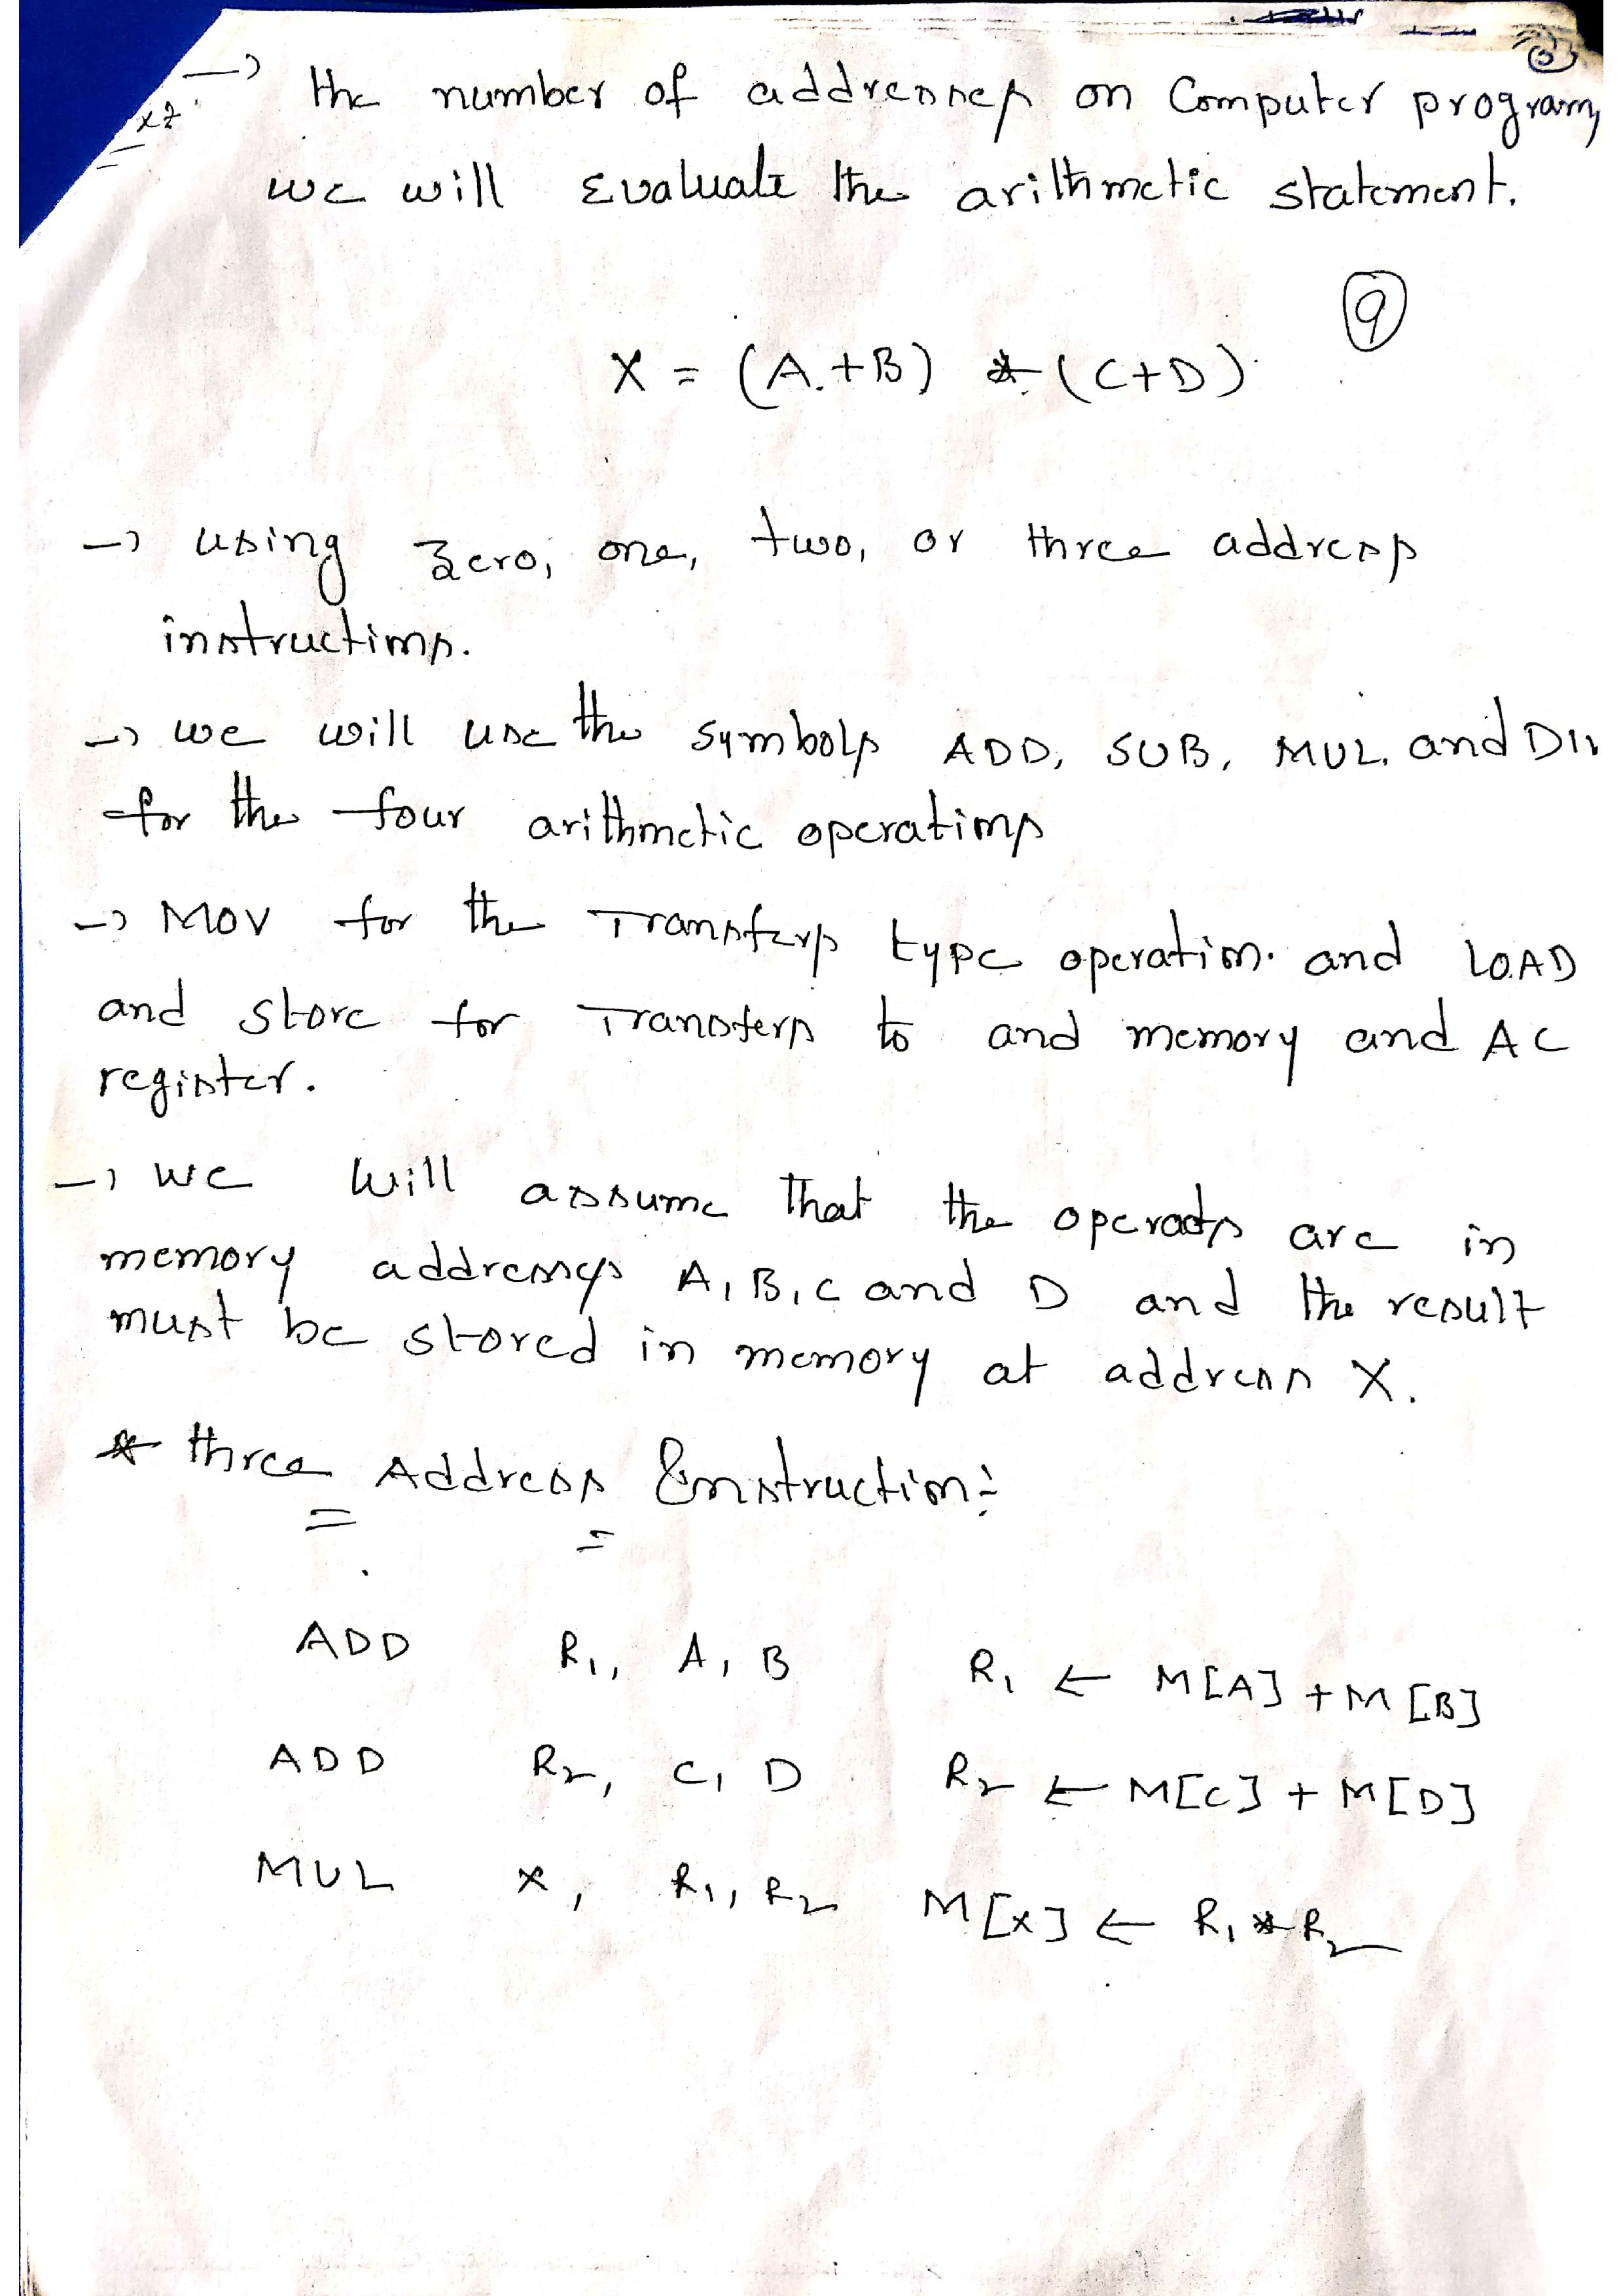 → the number of addresses on Computer program,
we will Evaluate the arithmetic statement.
9
X = (A+B) * (C+D)
→ using zero, one, two, or three address
instructions.
→ we will use the symbols ADD, SUB, MUL, and DIV
for the four arithmetic operations
→ MOV for the Transfers type operation. and LOAD
and store for Transfers to and memory and AC
register.
→ we will assume that the operads are in
memory addresses A, B, C and D and the result
must be stored in memory at address X.
* three Address Instruction:
ADD R1, A, B R1 ← M[A] + M[B]
ADD R2, C, D R2 ← M[C] + M[D]
MUL X, R1, R2 M[X] ← R1 * R2